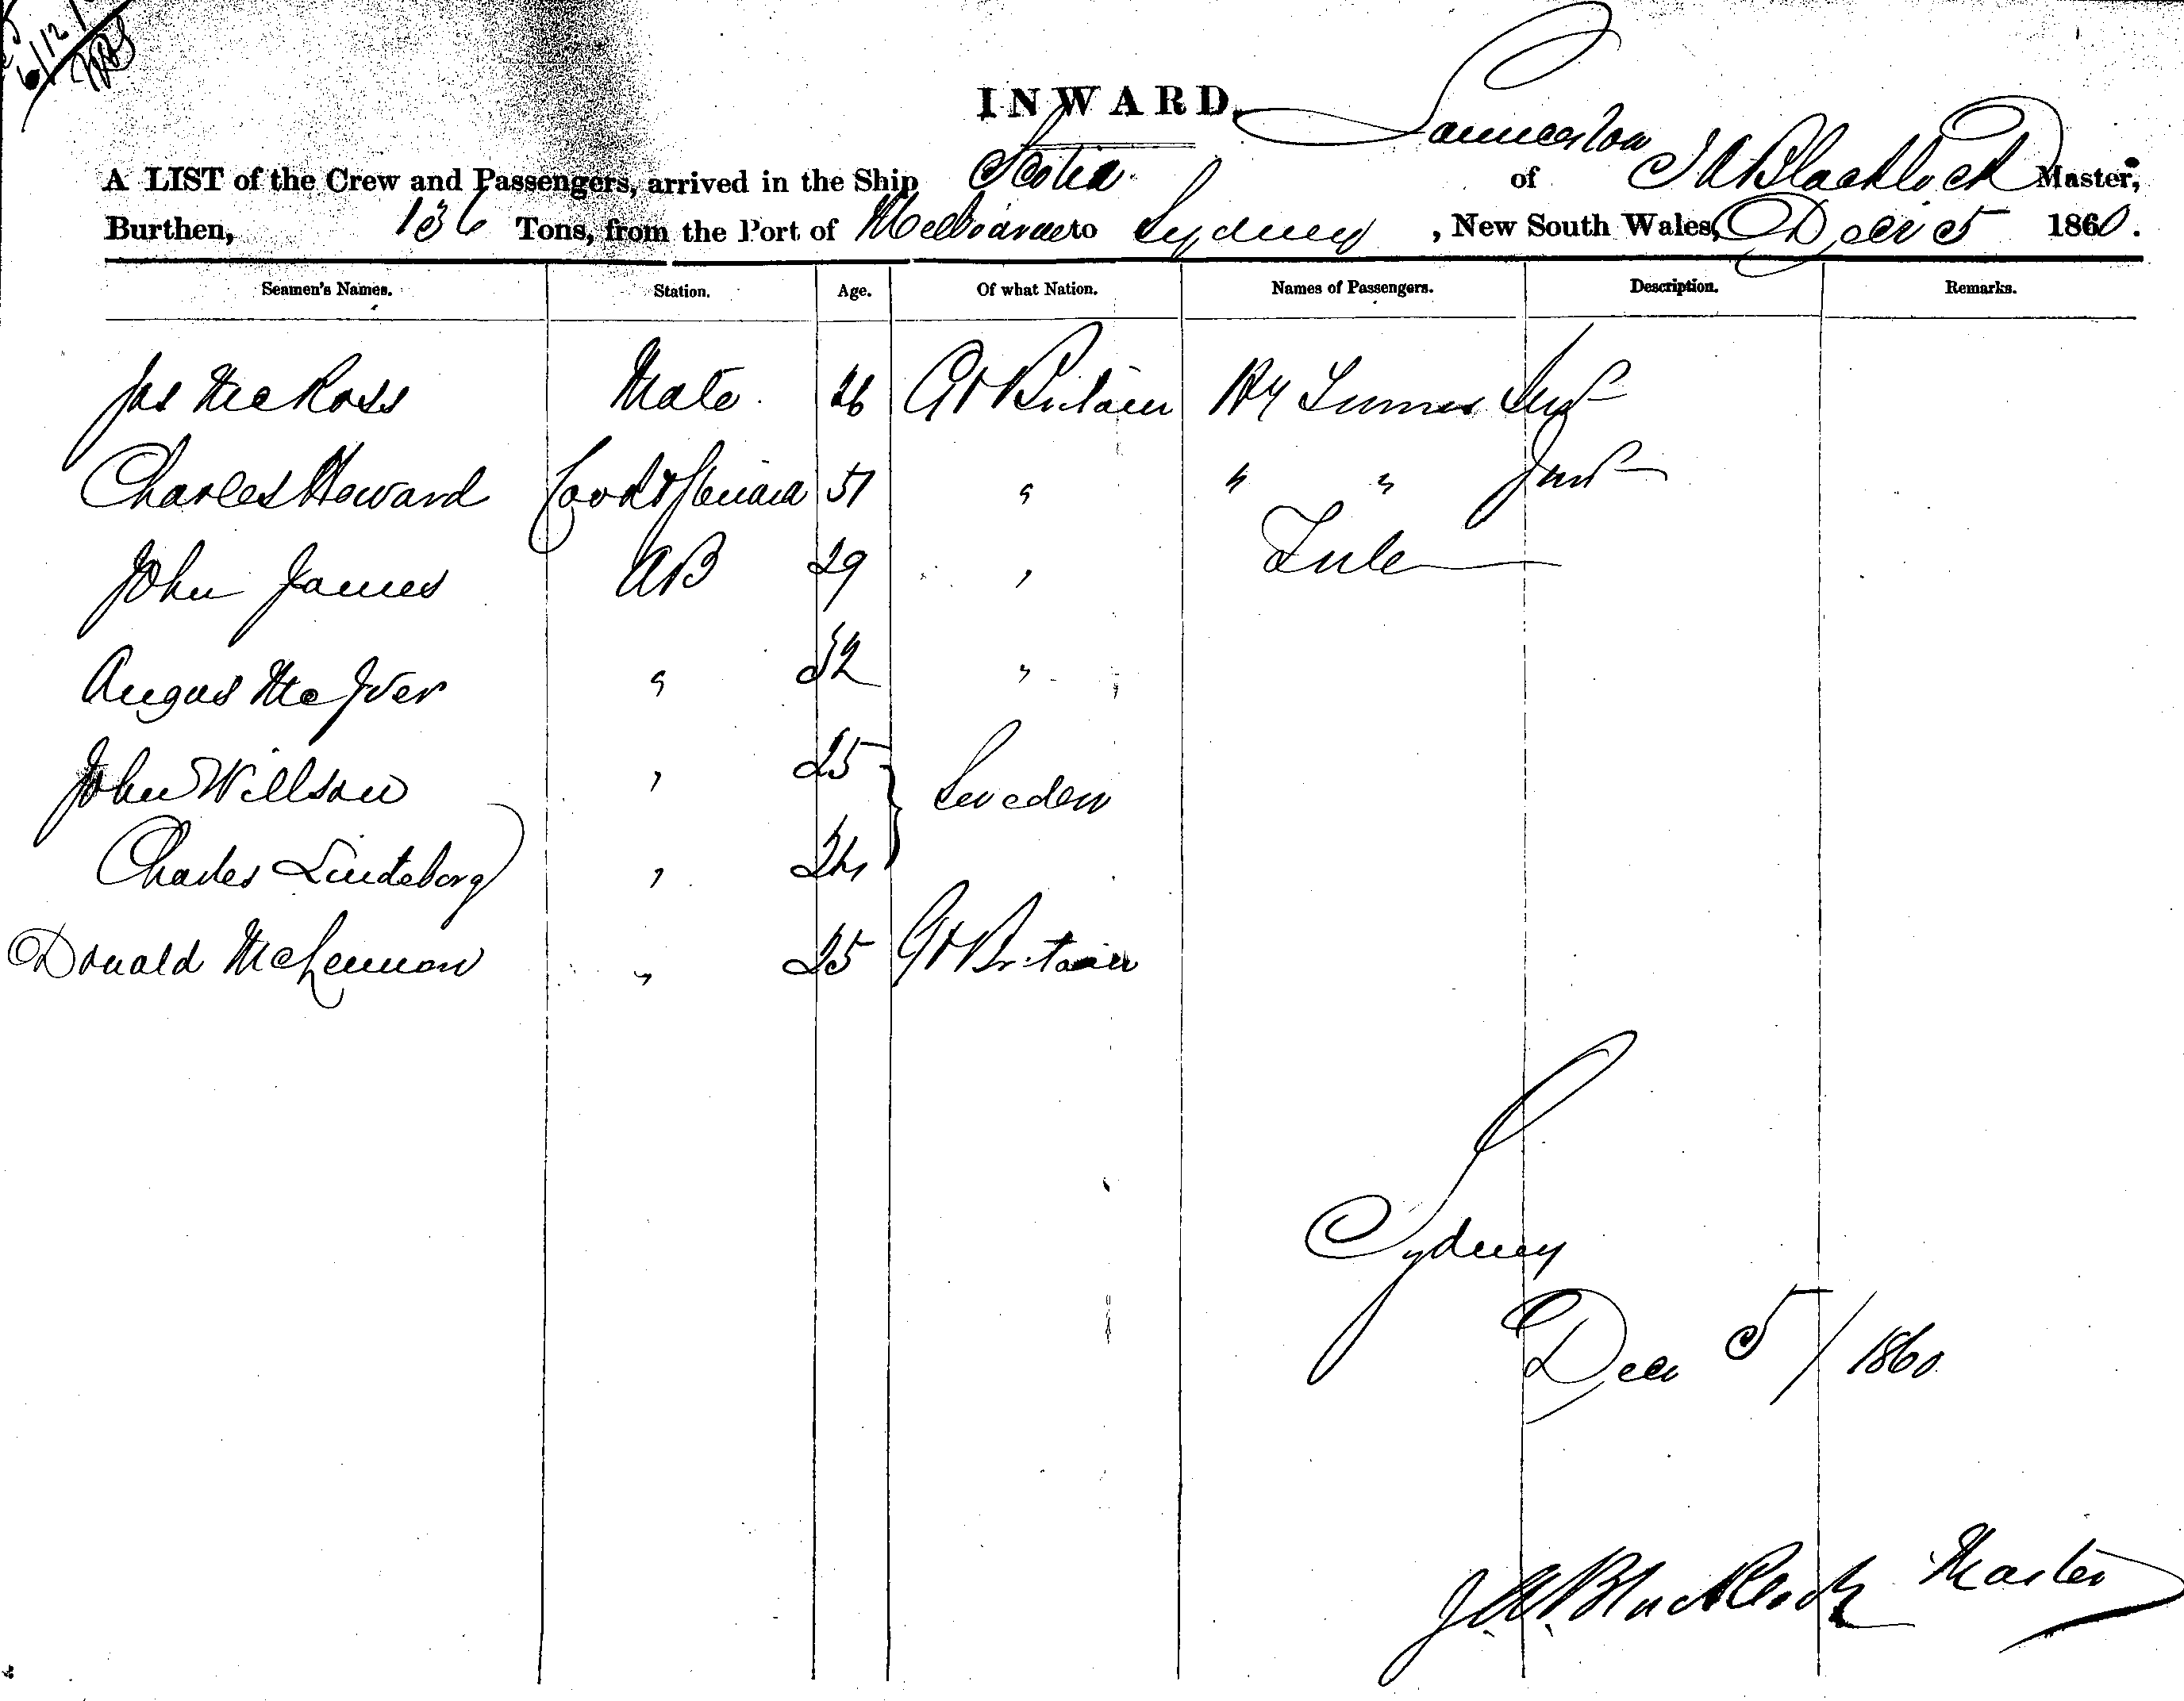 6/12/
INWARD.
Launceston
A LIST of the Crew and Passengers, arrived in the Ship Scotia of J W Blacklock Master,
Burthen, 136 Tons, from the Port of Melbourne to Sydney, New South Wales, Decr 5 1860.
Seamen's Names. Station. Age. Of what Nation. Names of Passengers. Description. Remarks.
Jas McRoss Mate 26 Gt Britain Hy Turner Senr
Charles Howard Cook & Steward 51 " " " Junr
John James AB 29 " Tule
Angus McIver " 32 "
John Willson " 25 } Sweden
Charles Lindeborg " 24
Donald McLennon " 25 Gt Britain
Sydney
Decr 5/1860
J.W. Blacklock Master